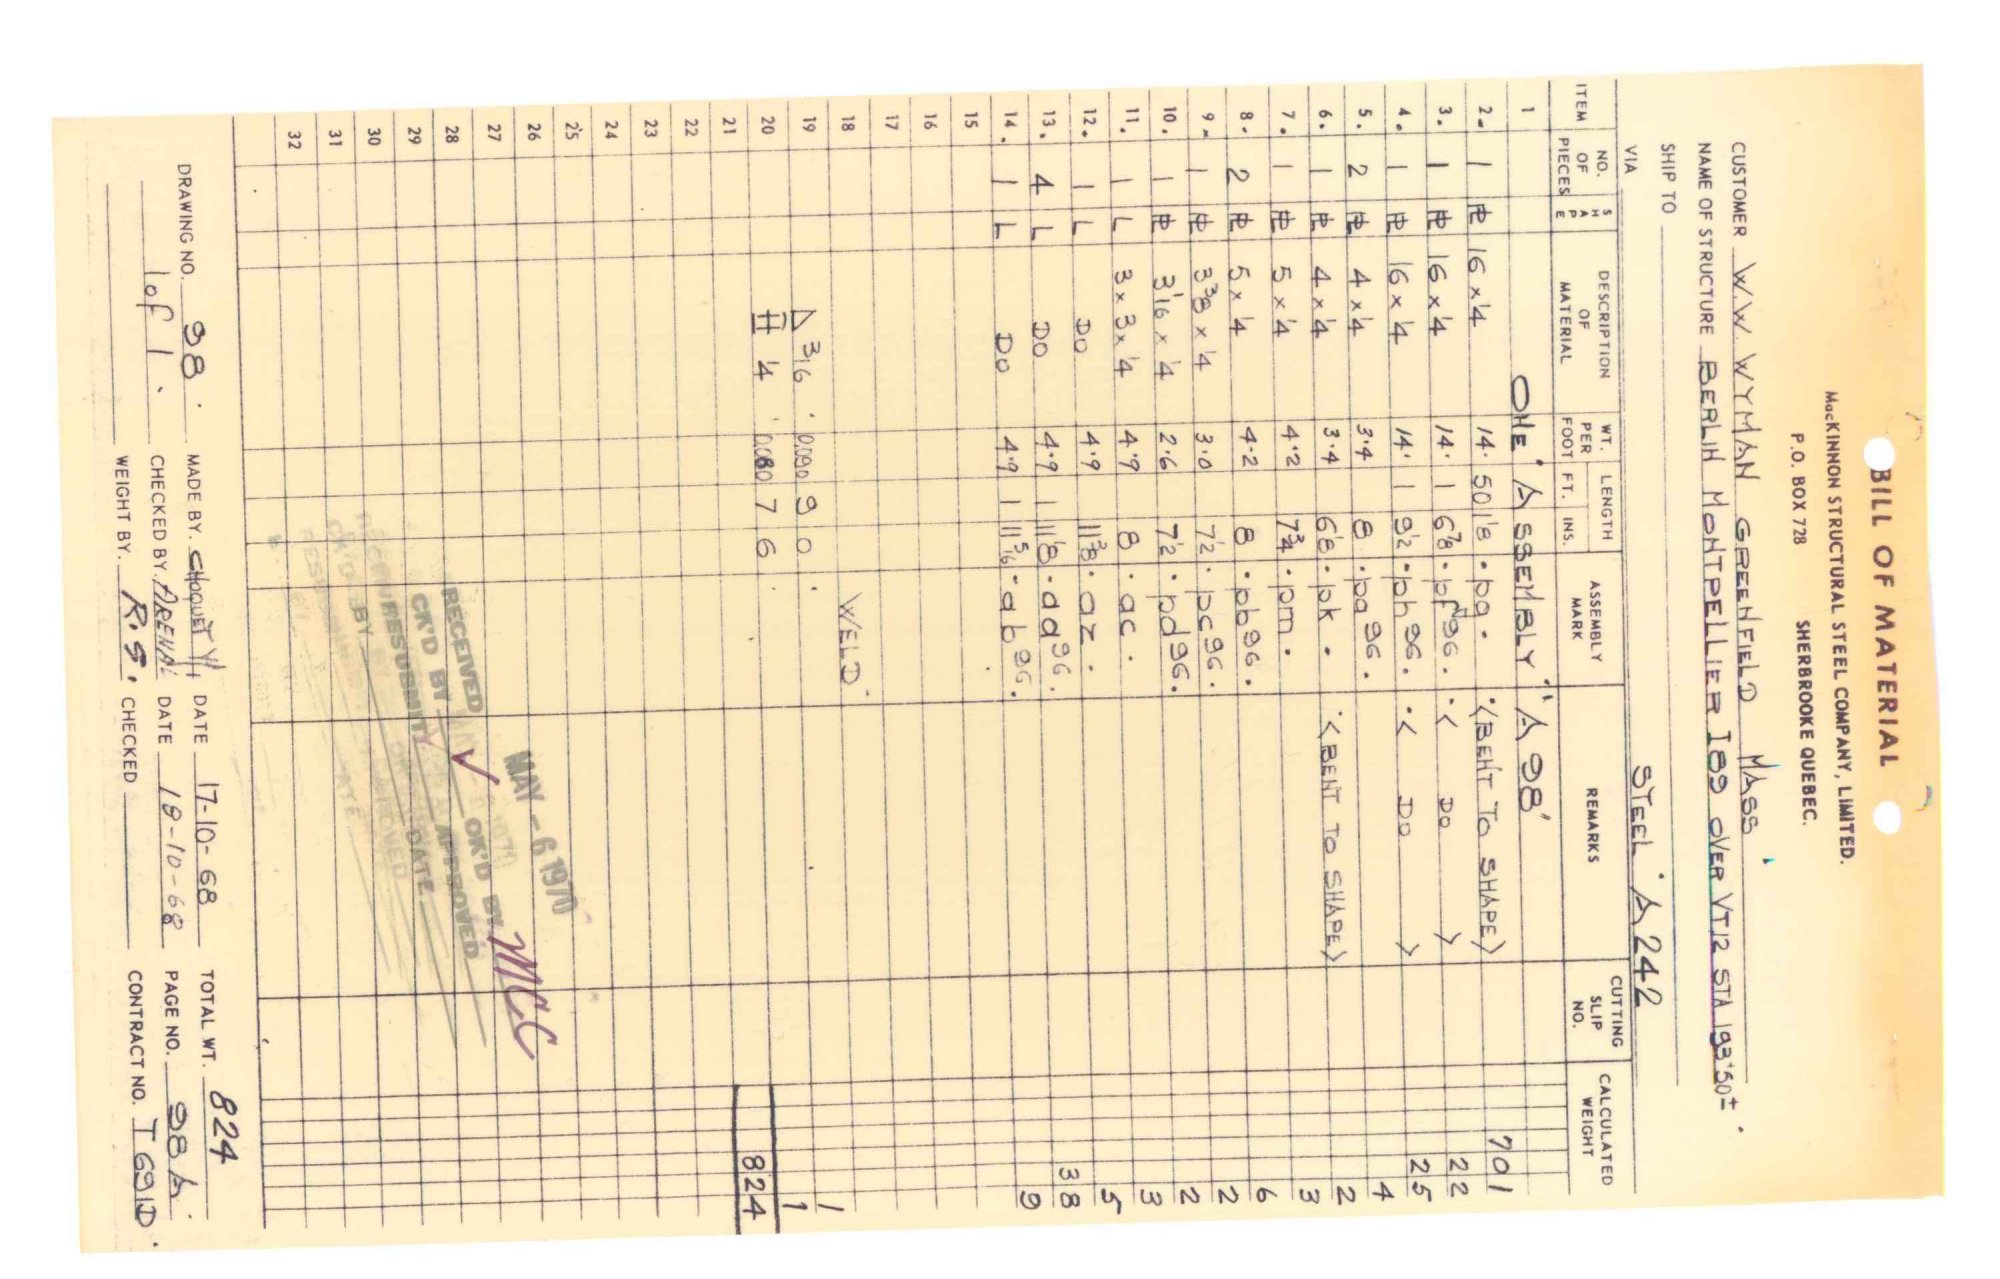 BILL OF MATERIAL
MacKINNON STRUCTURAL STEEL COMPANY, LIMITED.
P.O. BOX 728 SHERBROOKE QUEBEC.
CUSTOMER W.W. WYMAN GREENFIELD MASS.
NAME OF STRUCTURE BERLIN MONTPELLIER I89 OVER VT12 STA 193+50±.
SHIP TO
VIA STEEL A242
ITEM NO. OF PIECES SHAPE DESCRIPTION OF MATERIAL WT. PER FOOT LENGTH FT. INS. ASSEMBLY MARK REMARKS CUTTING SLIP NO. CALCULATED WEIGHT
1 ONE ASSEMBLY "A98"
2. 1 PL 16 x 1/4 14. 50 1/8 . pg. <BENT TO SHAPE> 701
3. 1 PL 16 x 1/4 14. 1 6 7/8 . pf96. < DO > 22
4. 1 PL 16 x 1/4 14. 1 9 1/2 . ph96. < DO > 25
5. 2 PL 4 x 1/4 3.4 8 . pa96. 4
6. 1 PL 4 x 1/4 3.4 6 1/8 . pk. <BENT TO SHAPE> 2
7. 1 PL 5 x 1/4 4.2 7 3/4 . pm. 3
8. 2 PL 5 x 1/4 4.2 8 . pb96. 6
9. 1 PL 3 3/8 x 1/4 3.0 7 1/2 . pc96. 2
10. 1 PL 3 1/16 x 1/4 2.6 7 1/2 . pd96. 2
11. 1 L 3 x 3 x 1/4 4.9 8 . ac. 3
12. 1 L DO 4.9 11 3/8 . az. 5
13. 4 L DO 4.9 1 11 1/8 . aa96. 38
14. 1 L DO 4.9 1 11 5/16 . ab96. 9
15
16
17
18 WELD.
19 3/16 . 0.090 9 0 . 1
20 1/4 . 0.080 7 6 . 1
824
21
22
23
24
25
26
27
28
29
30
31
32
MAY - 6 1970
RECEIVED
CK'D BY OK'D BY MCC
RESUBMIT APPROVED
BY DATE
DRAWING NO. 98. MADE BY. CHOQUETTE DATE 17-10-68 TOTAL WT. 824
1 of 1. CHECKED BY. ARENAL DATE 18-10-68 PAGE NO. 98A.
WEIGHT BY. R.S. CHECKED CONTRACT NO. T691D.